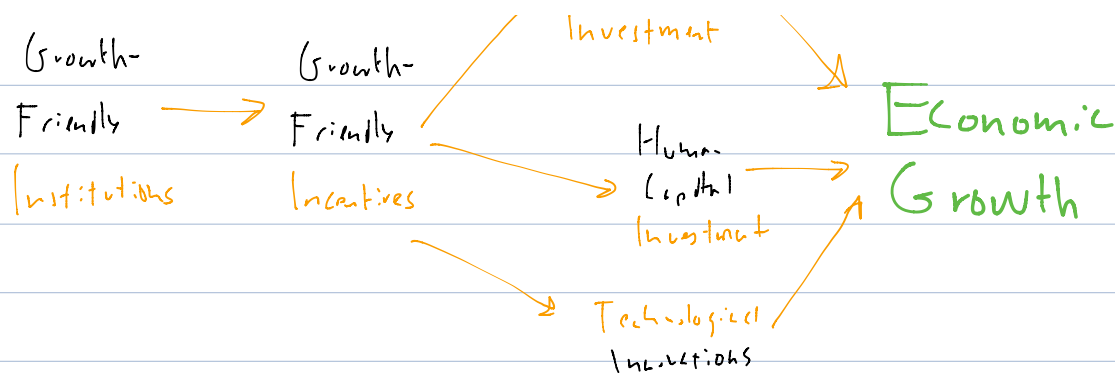 Growth-
Friendly
Institutions
Growth-
Friendly
Incentives
Investment
Human
Capital
Investment
Technological
Innovations
Economic
Growth